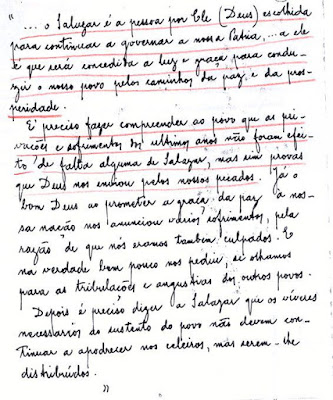 "
... o Salazar é a pessoa por Ele (Deus) escolhida
para continuar a governar a nossa Pátria, ... a ele
é que será concedida a luz e graça para condu-
zir o nosso povo pelos caminhos da paz e da pros-
peridade.
É preciso fazer compreender ao povo que as pri-
vações e sofrimentos dos ultimos anos não foram efei-
to de falta alguma de Salazar, mas sim provas
que Deus nos enviou pelos nossos pecados. Já o
bom Deus ao prometer a graça da paz à nos-
sa nação nos anunciou vários sofrimentos, pela
razão de que nós eramos tambem culpados. E
na verdade bem pouco nos pediu, se olhamos
para as tribulações e angustias dos outros povos.
Depois é preciso dizer a Salazar que os víveres
necessarios ao sustento do povo não devem con-
tinuar a apodrecer nos celeiros, mas serem-lhe
distribuídos.
"